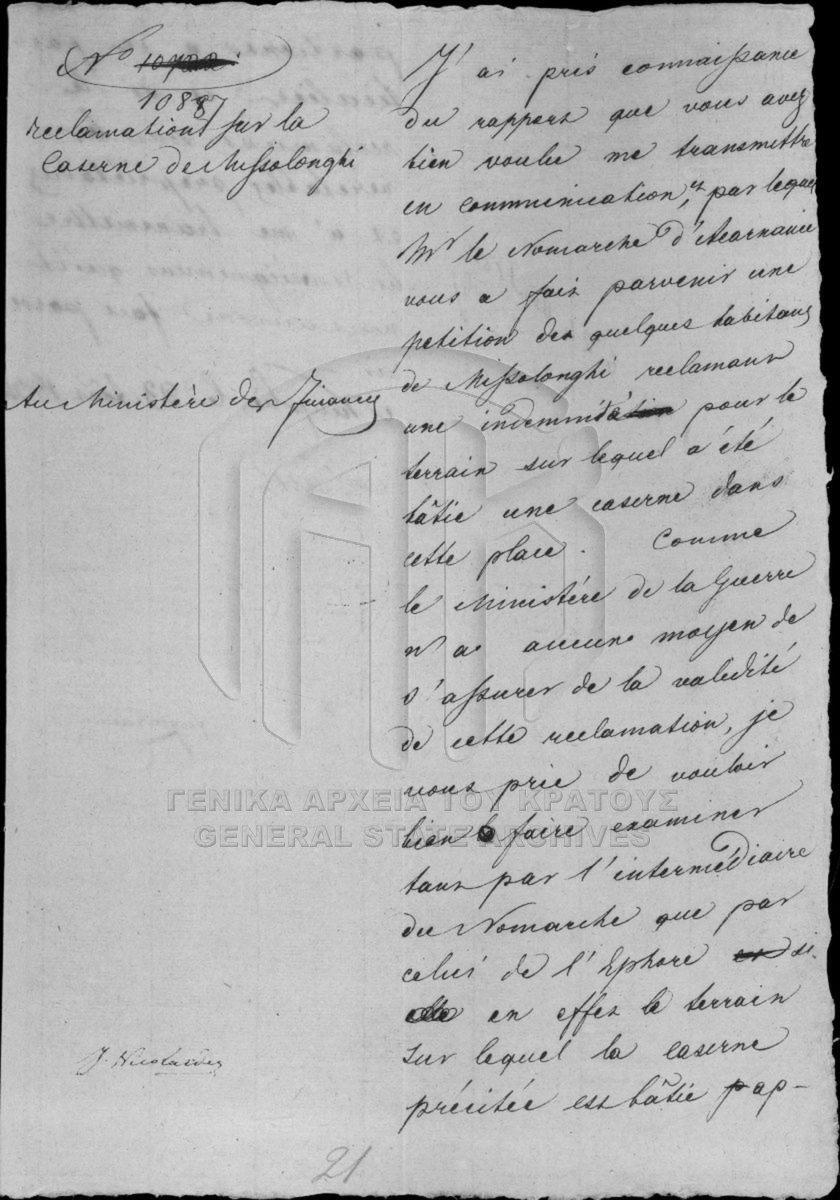 No 10722
10887
reclamations sur la
Caserne de Missolonghi
Au Ministère des Finances
J'ai pris connaissance
du rapport que vous avez
bien voulu me transmettre
en communication, et par lequel
Mr le Nomarche d'Acarnanie
vous a fait parvenir une
petition de quelques habitans
de Missolonghi reclamant
une indemnisation pour le
terrain sur lequel a été
bâtie une caserne dans
cette place. Comme
le Ministère de la Guerre
n'a aucun moyen de
s'assurer de la validité
de cette reclamation, je
vous prie de vouloir
bien faire examiner
tant par l'intermédiaire
du Nomarche que par
celui de l'Ephore si
en effet le terrain
sur lequel la caserne
précitée est bâtie pap-
J. Nicolaides
21
ΓΕΝΙΚΑ ΑΡΧΕΙΑ ΤΟΥ ΚΡΑΤΟΥΣ
GENERAL STATE ARCHIVES